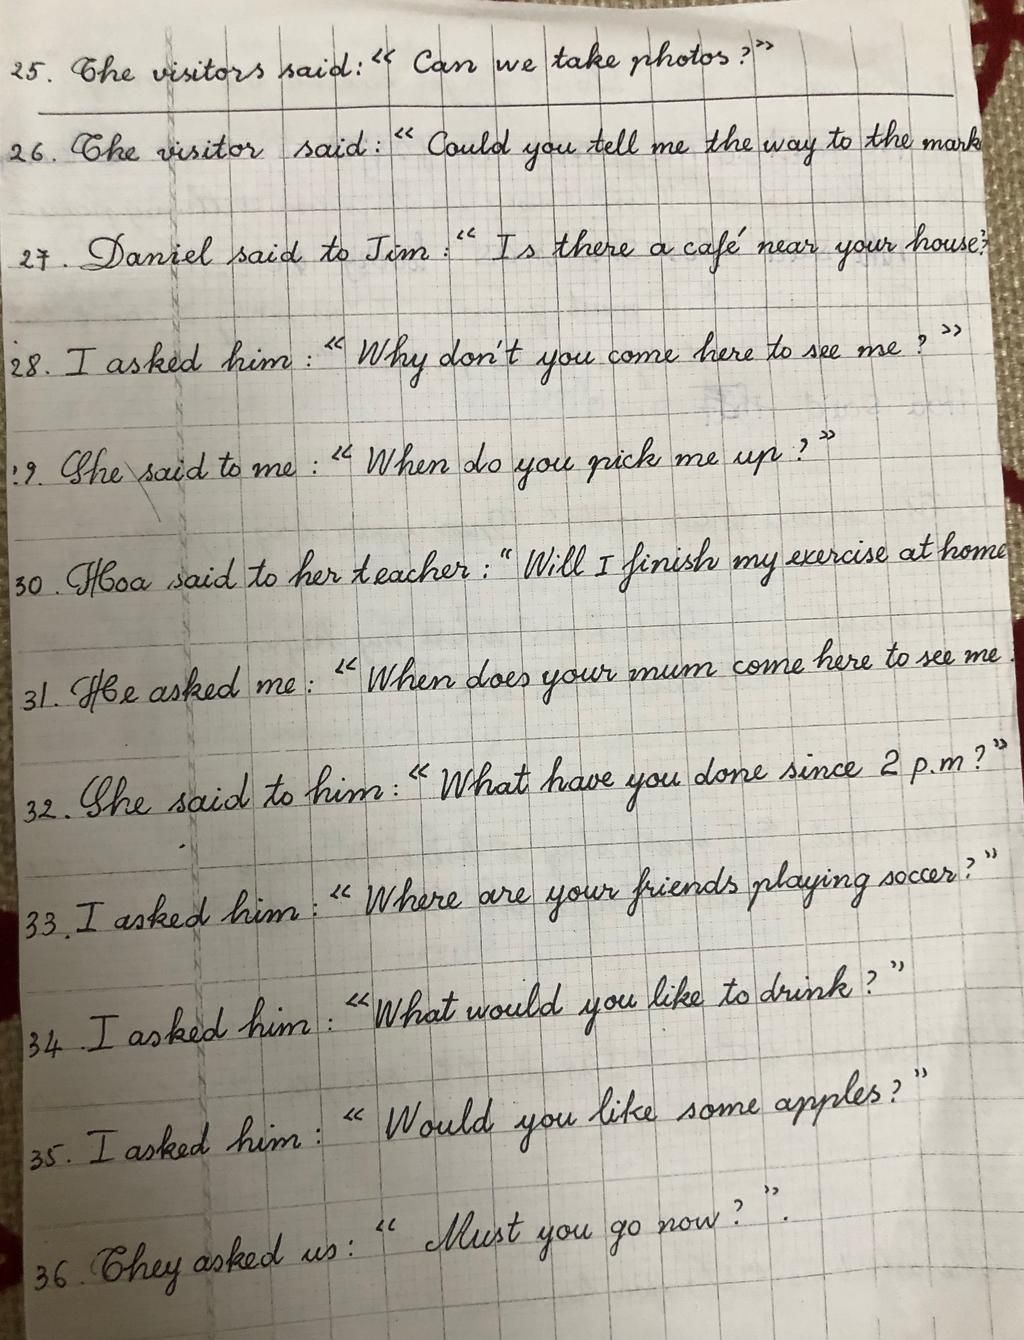 25. The visitors said: “ Can we take photos? ”
26. The visitor said: “ Could you tell me the way to the mark
27. Daniel said to Jim: “ Is there a café near your house?
28. I asked him: “ Why don't you come here to see me? ”
9. She said to me: “ When do you pick me up? ”
30. Hoa said to her teacher: “ Will I finish my exercise at home
31. He asked me: “ When does your mum come here to see me
32. She said to him: “ What have you done since 2 p.m? ”
33. I asked him: “ Where are your friends playing soccer? ”
34. I asked him: “ What would you like to drink? ”
35. I asked him: “ Would you like some apples? ”
36. They asked us: “ Must you go now? ”.